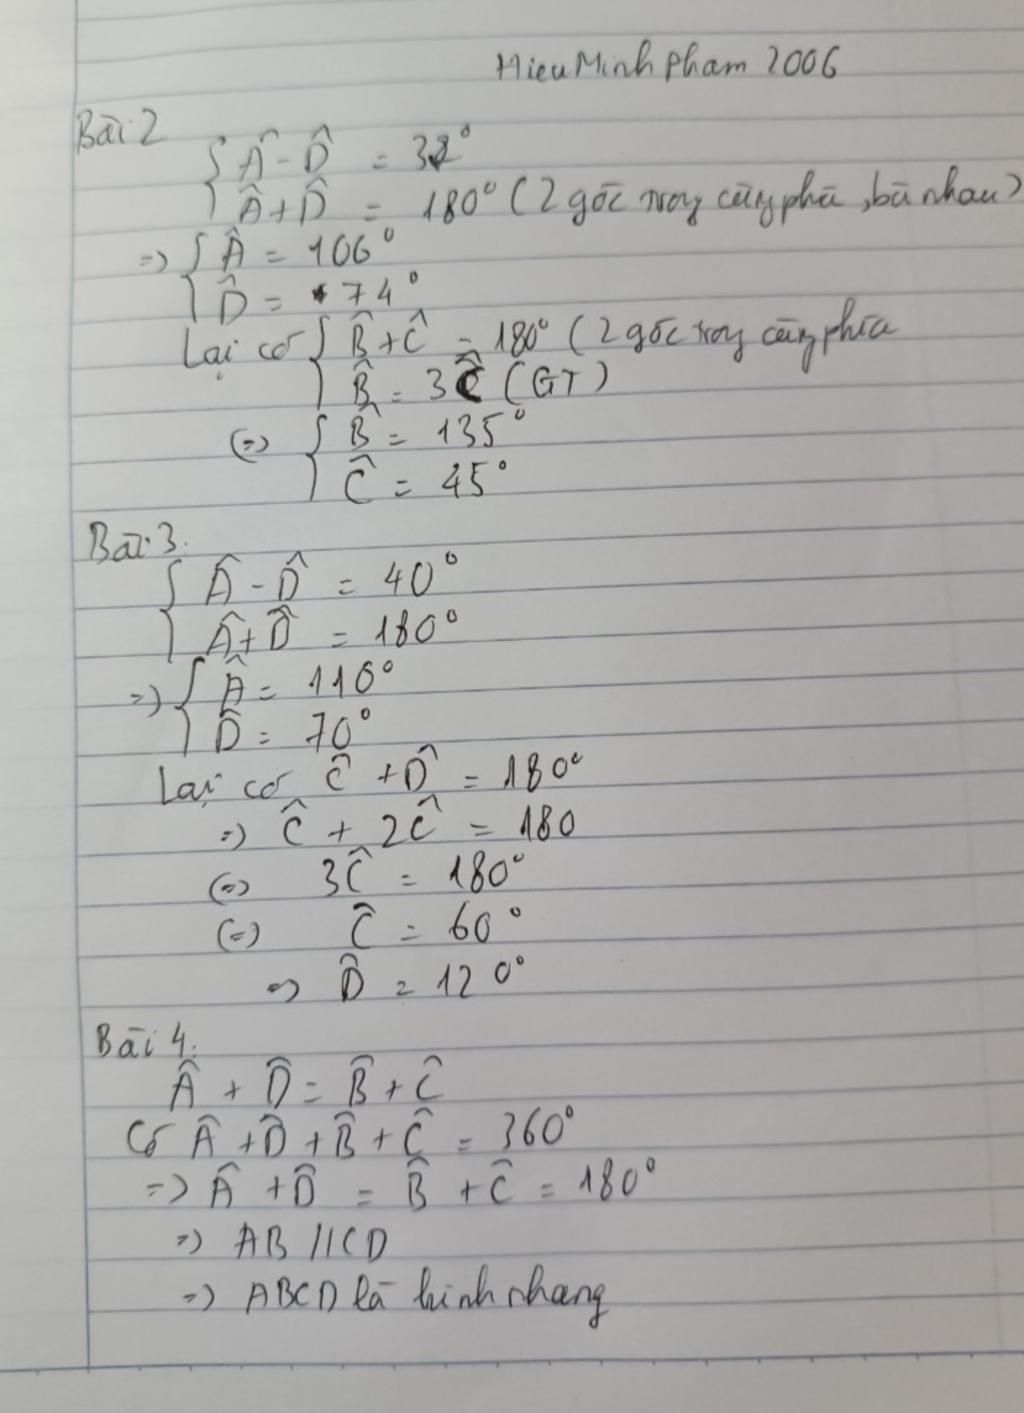 HieuMinhPham 2006
Bài 2
{ Â - D̂ = 32°
{ Â + D̂ = 180° (2 góc trong cùng phía, bù nhau)
=> { Â = 106°
{ D̂ = 74°
Lại có { B̂ + Ĉ = 180° (2 góc trong cùng phía
{ B̂ = 3Ĉ (GT)
(=) { B̂ = 135°
{ Ĉ = 45°
Bài 3.
{ Â - D̂ = 40°
{ Â + D̂ = 180°
=> { Â = 110°
{ D̂ = 70°
Lại có Ĉ + D̂ = 180°
=> Ĉ + 2Ĉ = 180
(=) 3Ĉ = 180°
(=) Ĉ = 60°
=> D̂ = 120°
Bài 4.
Â + D̂ = B̂ + Ĉ
Có Â + D̂ + B̂ + Ĉ = 360°
=> Â + D̂ = B̂ + Ĉ = 180°
=> AB // CD
=> ABCD là hình thang